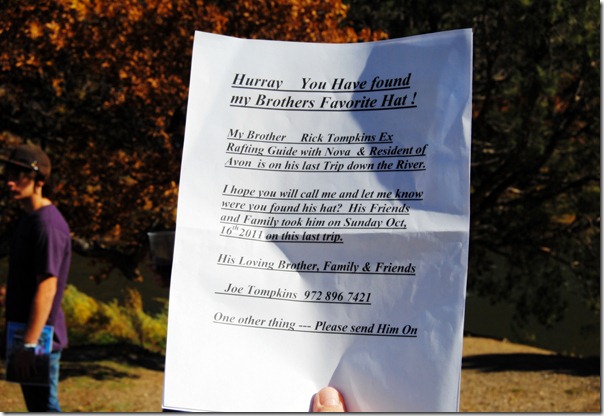 Hurray You Have found
my Brothers Favorite Hat !
My Brother Rick Tompkins Ex
Rafting Guide with Nova & Resident of
Avon is on his last Trip down the River.
I hope you will call me and let me know
were you found his hat? His Friends
and Family took him on Sunday Oct,
16th 2011 on this last trip.
His Loving Brother, Family & Friends
Joe Tompkins 972 896 7421
One other thing --- Please send Him On